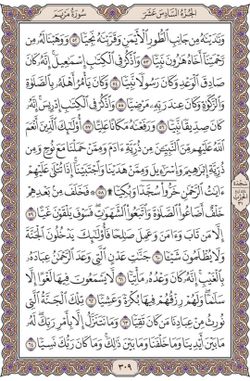 الجزء السادس عشر
سورة مريم
وَنَٰدَيْنَٰهُ مِن جَانِبِ ٱلطُّورِ ٱلْأَيْمَنِ وَقَرَّبْنَٰهُ نَجِيًّا ٥٢ وَوَهَبْنَا لَهُۥ مِن
رَّحْمَتِنَآ أَخَاهُ هَٰرُونَ نَبِيًّا ٥٣ وَٱذْكُرْ فِى ٱلْكِتَٰبِ إِسْمَٰعِيلَ إِنَّهُۥ كَانَ
صَادِقَ ٱلْوَعْدِ وَكَانَ رَسُولًا نَّبِيًّا ٥٤ وَكَانَ يَأْمُرُ أَهْلَهُۥ بِٱلصَّلَوٰةِ
وَٱلزَّكَوٰةِ وَكَانَ عِندَ رَبِّهِۦ مَرْضِيًّا ٥٥ وَٱذْكُرْ فِى ٱلْكِتَٰبِ إِدْرِيسَ إِنَّهُۥ
كَانَ صِدِّيقًا نَّبِيًّا ٥٦ وَرَفَعْنَٰهُ مَكَانًا عَلِيًّا ٥٧ أُو۟لَٰٓئِكَ ٱلَّذِينَ أَنْعَمَ
ٱللَّهُ عَلَيْهِم مِّنَ ٱلنَّبِيِّۦنَ مِن ذُرِّيَّةِ ءَادَمَ وَمِمَّنْ حَمَلْنَا مَعَ نُوحٍ وَمِن
ذُرِّيَّةِ إِبْرَٰهِيمَ وَإِسْرَٰٓءِيلَ وَمِمَّنْ هَدَيْنَا وَٱجْتَبَيْنَآ إِذَا تُتْلَىٰ عَلَيْهِمْ
ءَايَٰتُ ٱلرَّحْمَٰنِ خَرُّوا۟ سُجَّدًا وَبُكِيًّا ٥٨ فَخَلَفَ مِنۢ بَعْدِهِمْ
خَلْفٌ أَضَاعُوا۟ ٱلصَّلَوٰةَ وَٱتَّبَعُوا۟ ٱلشَّهَوَٰتِ فَسَوْفَ يَلْقَوْنَ غَيًّا ٥٩
إِلَّا مَن تَابَ وَءَامَنَ وَعَمِلَ صَٰلِحًا فَأُو۟لَٰٓئِكَ يَدْخُلُونَ ٱلْجَنَّةَ
وَلَا يُظْلَمُونَ شَيْـًٔا ٦٠ جَنَّٰتِ عَدْنٍ ٱلَّتِى وَعَدَ ٱلرَّحْمَٰنُ عِبَادَهُۥ
بِٱلْغَيْبِ إِنَّهُۥ كَانَ وَعْدُهُۥ مَأْتِيًّا ٦١ لَّا يَسْمَعُونَ فِيهَا لَغْوًا إِلَّا
سَلَٰمًا وَلَهُمْ رِزْقُهُمْ فِيهَا بُكْرَةً وَعَشِيًّا ٦٢ تِلْكَ ٱلْجَنَّةُ ٱلَّتِى
نُورِثُ مِنْ عِبَادِنَا مَن كَانَ تَقِيًّا ٦٣ وَمَا نَتَنَزَّلُ إِلَّا بِأَمْرِ رَبِّكَ لَهُۥ مَا
بَيْنَ أَيْدِينَا وَمَا خَلْفَنَا وَمَا بَيْنَ ذَٰلِكَ وَمَا كَانَ رَبُّكَ نَسِيًّا ٦٤
سجدة
٣٠٩